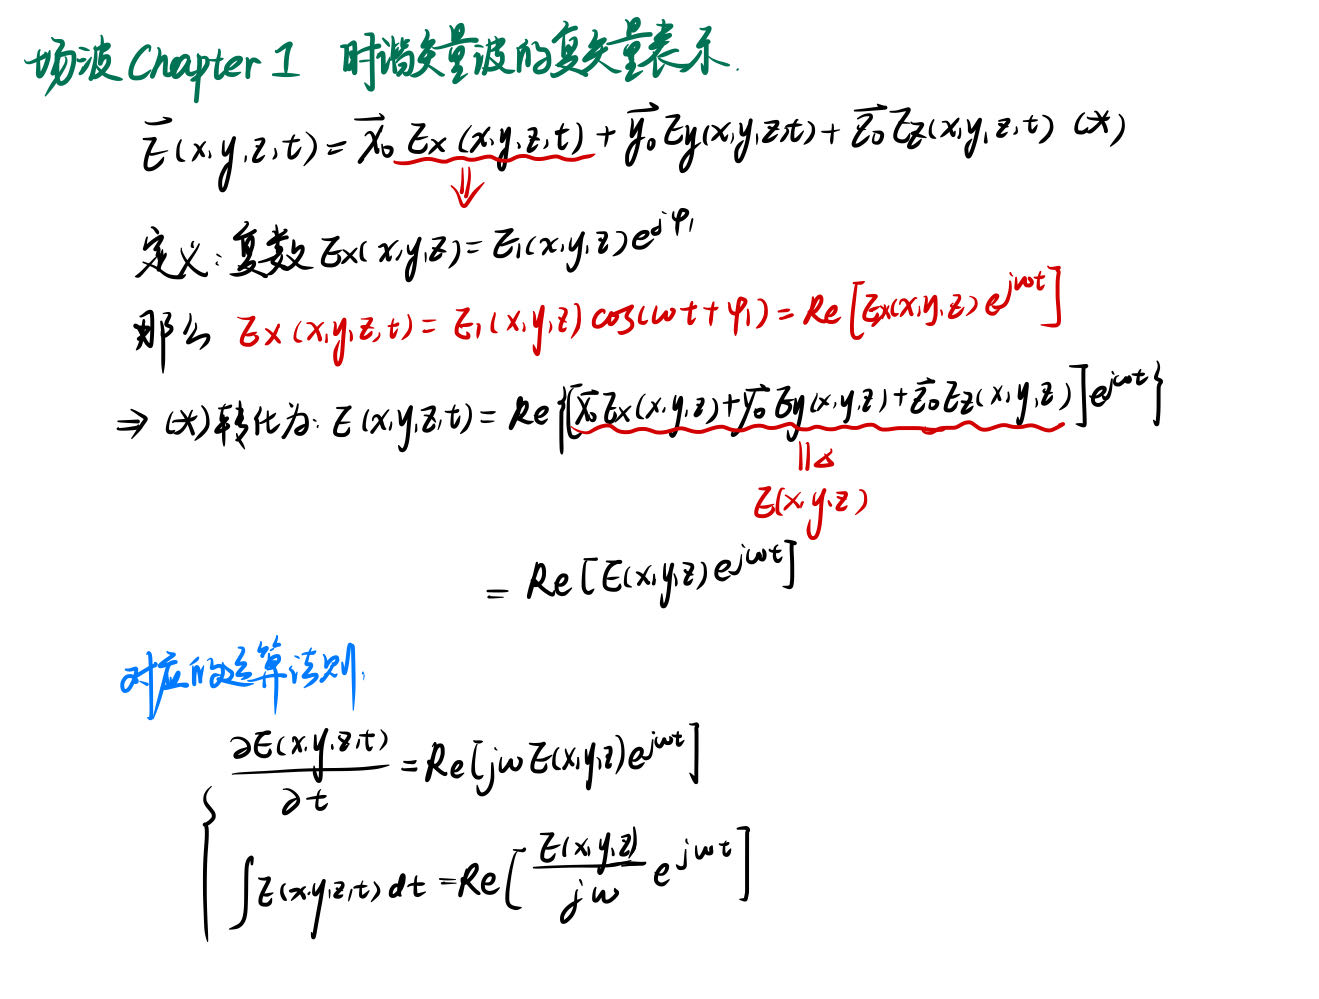 场波 Chapter 1 时谐矢量波的复矢量表示.
E⃗(x,y,z,t) = x⃗₀ Ex(x,y,z,t) + y⃗₀ Ey(x,y,z,t) + z⃗₀ Ez(x,y,z,t) (*)
⇓
定义: 复数 Ex(x,y,z) = E₁(x,y,z)e^{jφ₁}
那么 Ex(x,y,z,t) = E₁(x,y,z) cos(ωt+φ₁) = Re[Ex(x,y,z) e^{jωt}]
⇒ (*)转化为: E(x,y,z,t) = Re{[x⃗₀Ex(x,y,z) + y⃗₀Ey(x,y,z) + z⃗₀Ez(x,y,z)]e^{jωt}}
||Δ
E(x,y,z)
= Re[E(x,y,z)e^{jωt}]
对应的运算法则.
∂E(x,y,z,t)/∂t = Re[jωE(x,y,z)e^{jωt}]
∫E(x,y,z,t)dt = Re[E(x,y,z)/jω e^{jωt}]